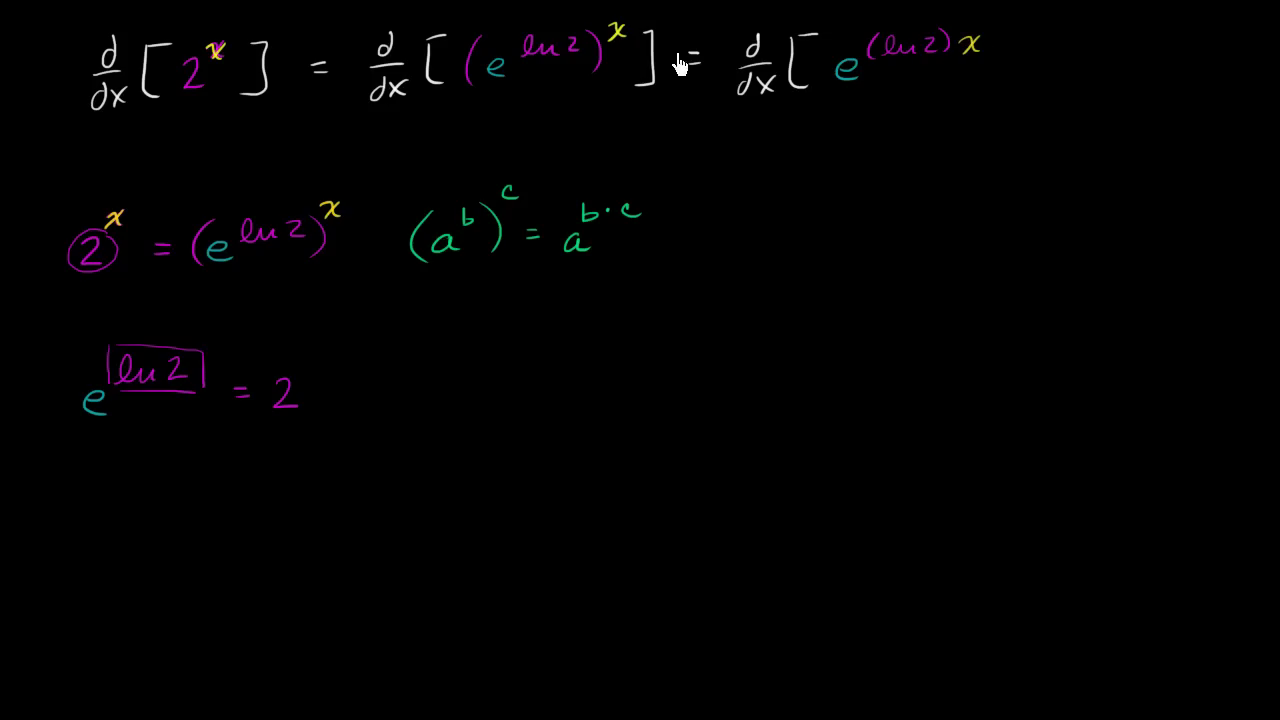 d/dx [ 2^x ] = d/dx [ (e^(ln 2))^x ] = d/dx [ e^((ln 2) x)
2^x = (e^(ln 2))^x (a^b)^c = a^(b·c)
e^(ln 2) = 2